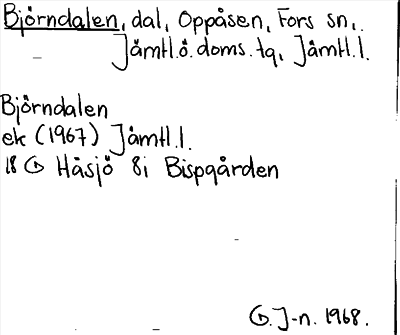 Björndalen, dal, Oppåsen, Fors sn,
Jämtl.ö.doms.tg, Jämtl.l.
Björndalen
ek (1967) Jämtl.l.
18 G Håsjö 8i Bispgården
G.J-n. 1968.